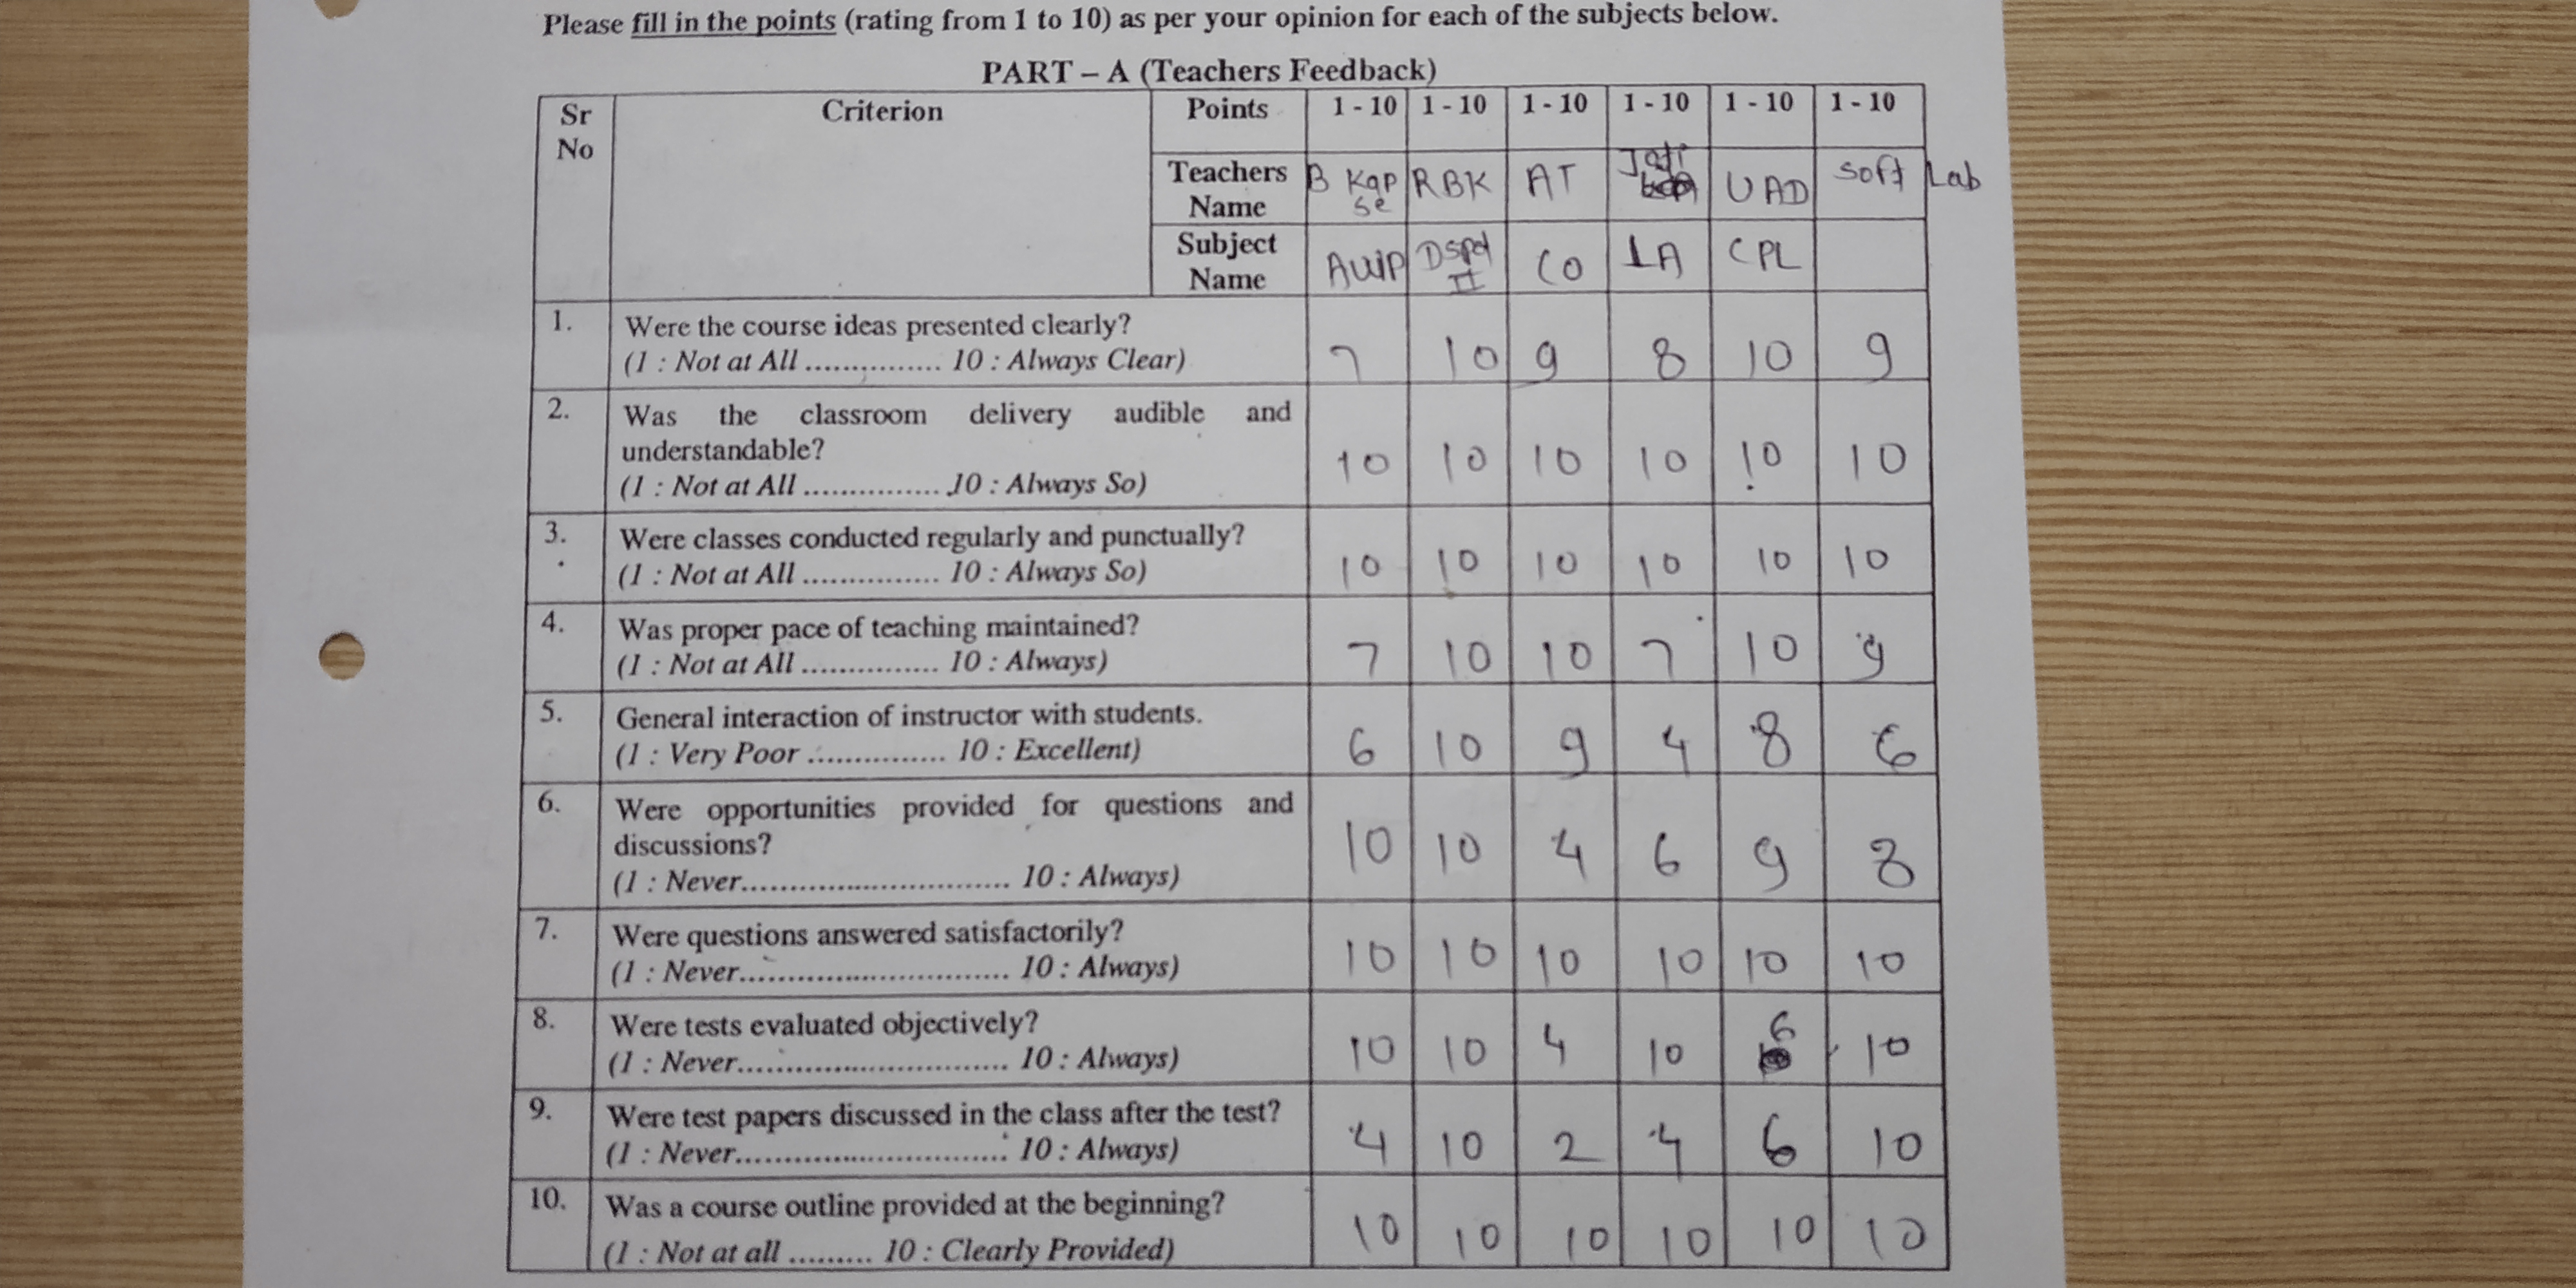 Please fill in the points (rating from 1 to 10) as per your opinion for each of the subjects below.
PART – A (Teachers Feedback)
Sr No Criterion Points 1 - 10 1 - 10 1 - 10 1 - 10 1 - 10 1 - 10
Teachers Name B Kapse RBK AT UAD Soft Lab
Subject Name AWP II CO LA CPL
1. Were the course ideas presented clearly?
(1 : Not at All ............... 10 : Always Clear) 7 10 9 8 10 9
2. Was the classroom delivery audible and
understandable?
(1 : Not at All ............... 10 : Always So) 10 10 10 10 10 10
3. Were classes conducted regularly and punctually?
(1 : Not at All ............... 10 : Always So) 10 10 10 10 10 10
4. Was proper pace of teaching maintained?
(1 : Not at All ............... 10 : Always) 7 10 10 7 10 9
5. General interaction of instructor with students.
(1 : Very Poor ............... 10 : Excellent) 6 10 9 4 8 6
6. Were opportunities provided for questions and
discussions?
(1 : Never.............................. 10 : Always) 10 10 4 6 9 8
7. Were questions answered satisfactorily?
(1 : Never.............................. 10 : Always) 10 10 10 10 10 10
8. Were tests evaluated objectively?
(1 : Never.............................. 10 : Always) 10 10 4 10 6 10
9. Were test papers discussed in the class after the test?
(1 : Never.............................. 10 : Always) 4 10 2 4 6 10
10. Was a course outline provided at the beginning?
(1 : Not at all ......... 10 : Clearly Provided) 10 10 10 10 10 10